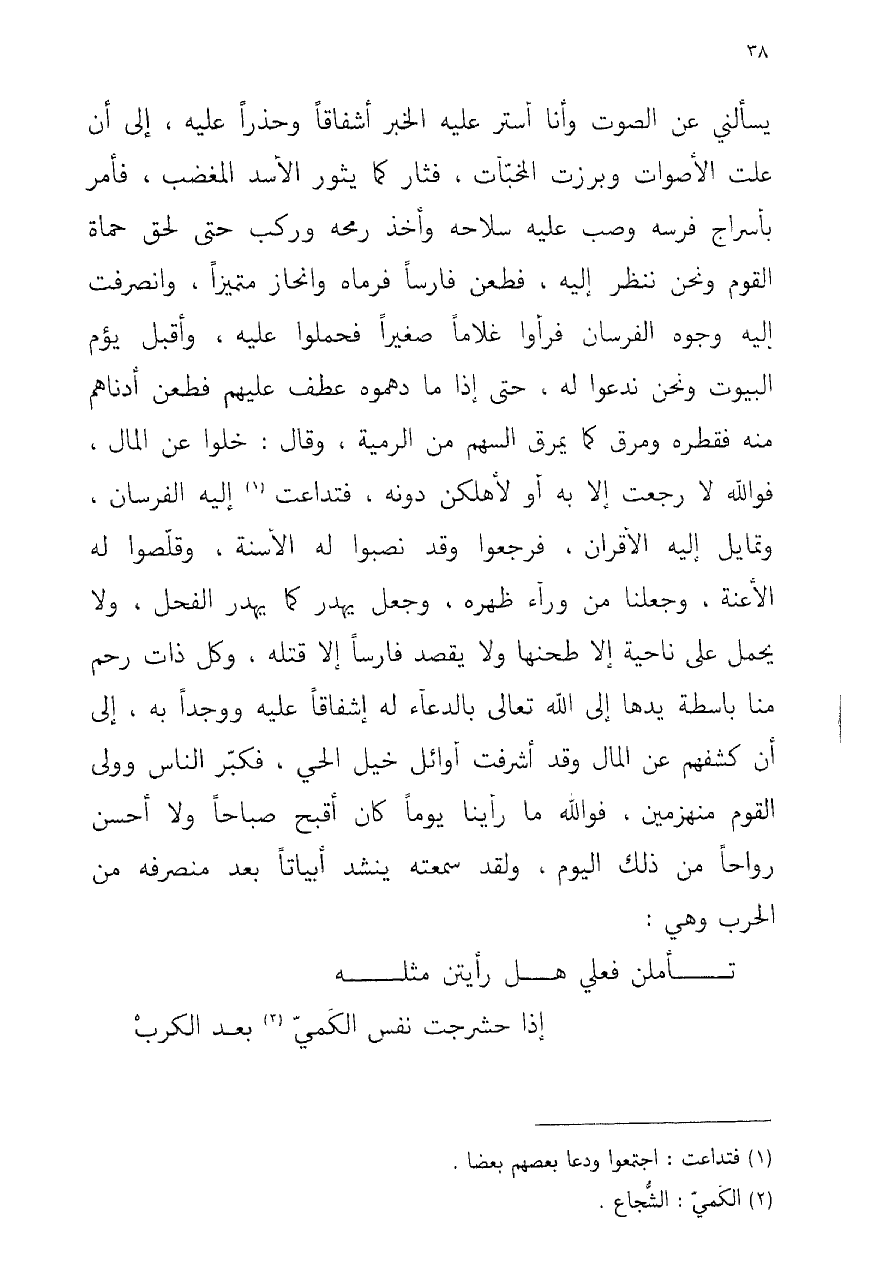 ٣٨
يسألني عن الصوت وأنا أستر عليه الخبر أشفاقاً وحذراً عليه ، إلى أن
علت الأصوات وبرزت المخبّآت ، فثار كما يثور الأسد المغضب ، فأمر
بأسراج فرسه وصب عليه سلاحه وأخذ رمحه وركب حتى لحق حماة
القوم ونحن ننظر إليه ، فطعن فارساً فرماه وانحاز متميزاً ، وانصرفت
إليه وجوه الفرسان فرأوا غلاماً صغيراً فحملوا عليه ، وأقبل يؤم
البيوت ونحن ندعوا له ، حتى إذا ما دهموه عطف عليهم فطعن أدناهم
منه فقطره ومرق كما يمرق السهم من الرمية ، وقال : خلوا عن المال ،
فوالله لا رجعت إلا به أو لأهلكن دونه ، فتداعت (١) إليه الفرسان ،
وتمايل إليه الأقران ، فرجعوا وقد نصبوا له الأسنة ، وقلّصوا له
الأعنة ، وجعلنا من ورآء ظهره ، وجعل يهدر كما يهدر الفحل ، ولا
يحمل على ناحية إلا طحنها ولا يقصد فارساً إلا قتله ، وكل ذات رحم
منا باسطة يدها إلى الله تعالى بالدعآء له إشفاقاً عليه ووجداً به ، إلى
أن كشفهم عن المال وقد أشرفت أوائل خيل الحي ، فكبّر الناس وولى
القوم منهزمين ، فوالله ما رأينا يوماً كان أقبح صباحاً ولا أحسن
رواحاً من ذلك اليوم ، ولقد سمعته ينشد أبياتاً بعد منصرفه من
الحرب وهي :
تـــأملن فعلي هـــل رأيتن مثلـــه
إذا حشرجت نفس الكَميّ (٢) بعـد الكربْ
(١) فتداعت : اجتمعوا ودعا بعضهم بعضا .
(٢) الكَميّ : الشُّجاع .